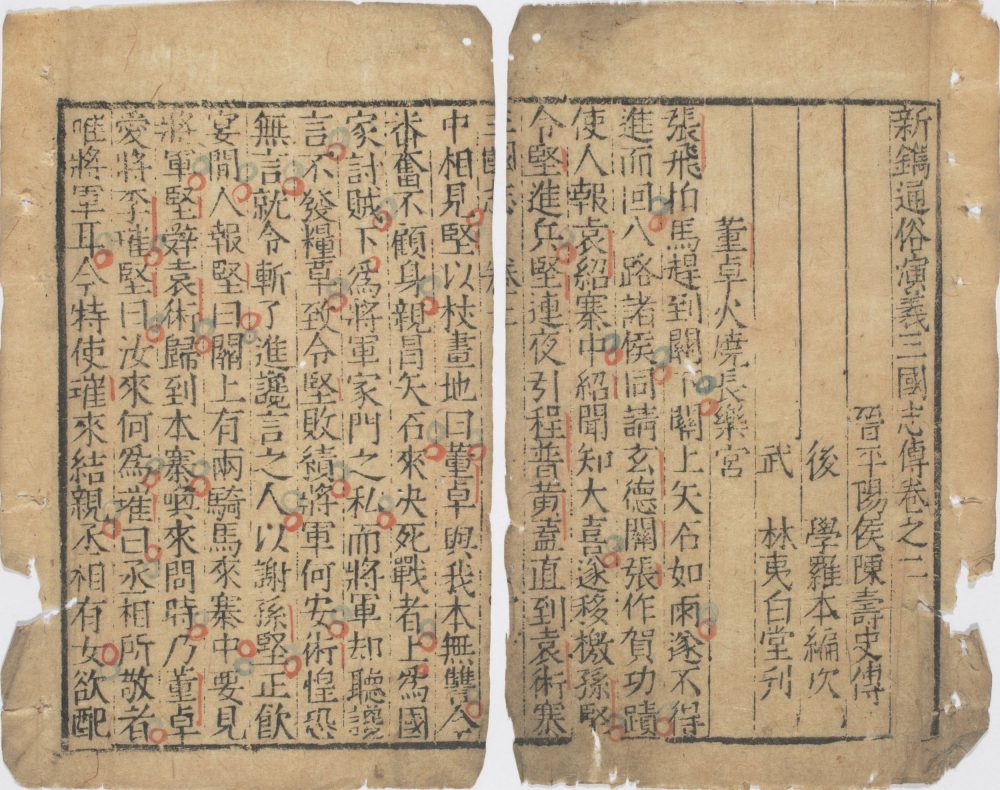 新鐫通俗演義三國志傳卷之二
晉平陽侯陳壽史傳
後學羅本編次
武林夷白堂刊
董卓火燒長樂宮
張飛拍馬趕到關下關上矢石如雨遂不得
進而回八路諸侯同請玄德關張作賀功蹟
使人報袁紹寨中紹聞知大喜遂移檄孫堅
令堅進兵堅連夜引程普黃蓋直到袁術寨
三國志 卷二
中相見堅以杖畫地曰董卓與我本無讐今
番奮不顧身親冒矢石來決死戰者上為國
家討賊下為將軍家門之私而將軍却聽讒
言不發糧草致令堅敗績將軍何安術惶恐
無言就令斬了進讒言之人以謝孫堅正飲
宴間人報堅曰關上有兩騎馬來寨中要見
將軍堅辤袁術歸到本寨喚來問時乃董卓
愛將李㩁堅曰汝來何為㩁曰丞相所敬者
唯將軍耳今特使㩁來結親丞相有女欲配